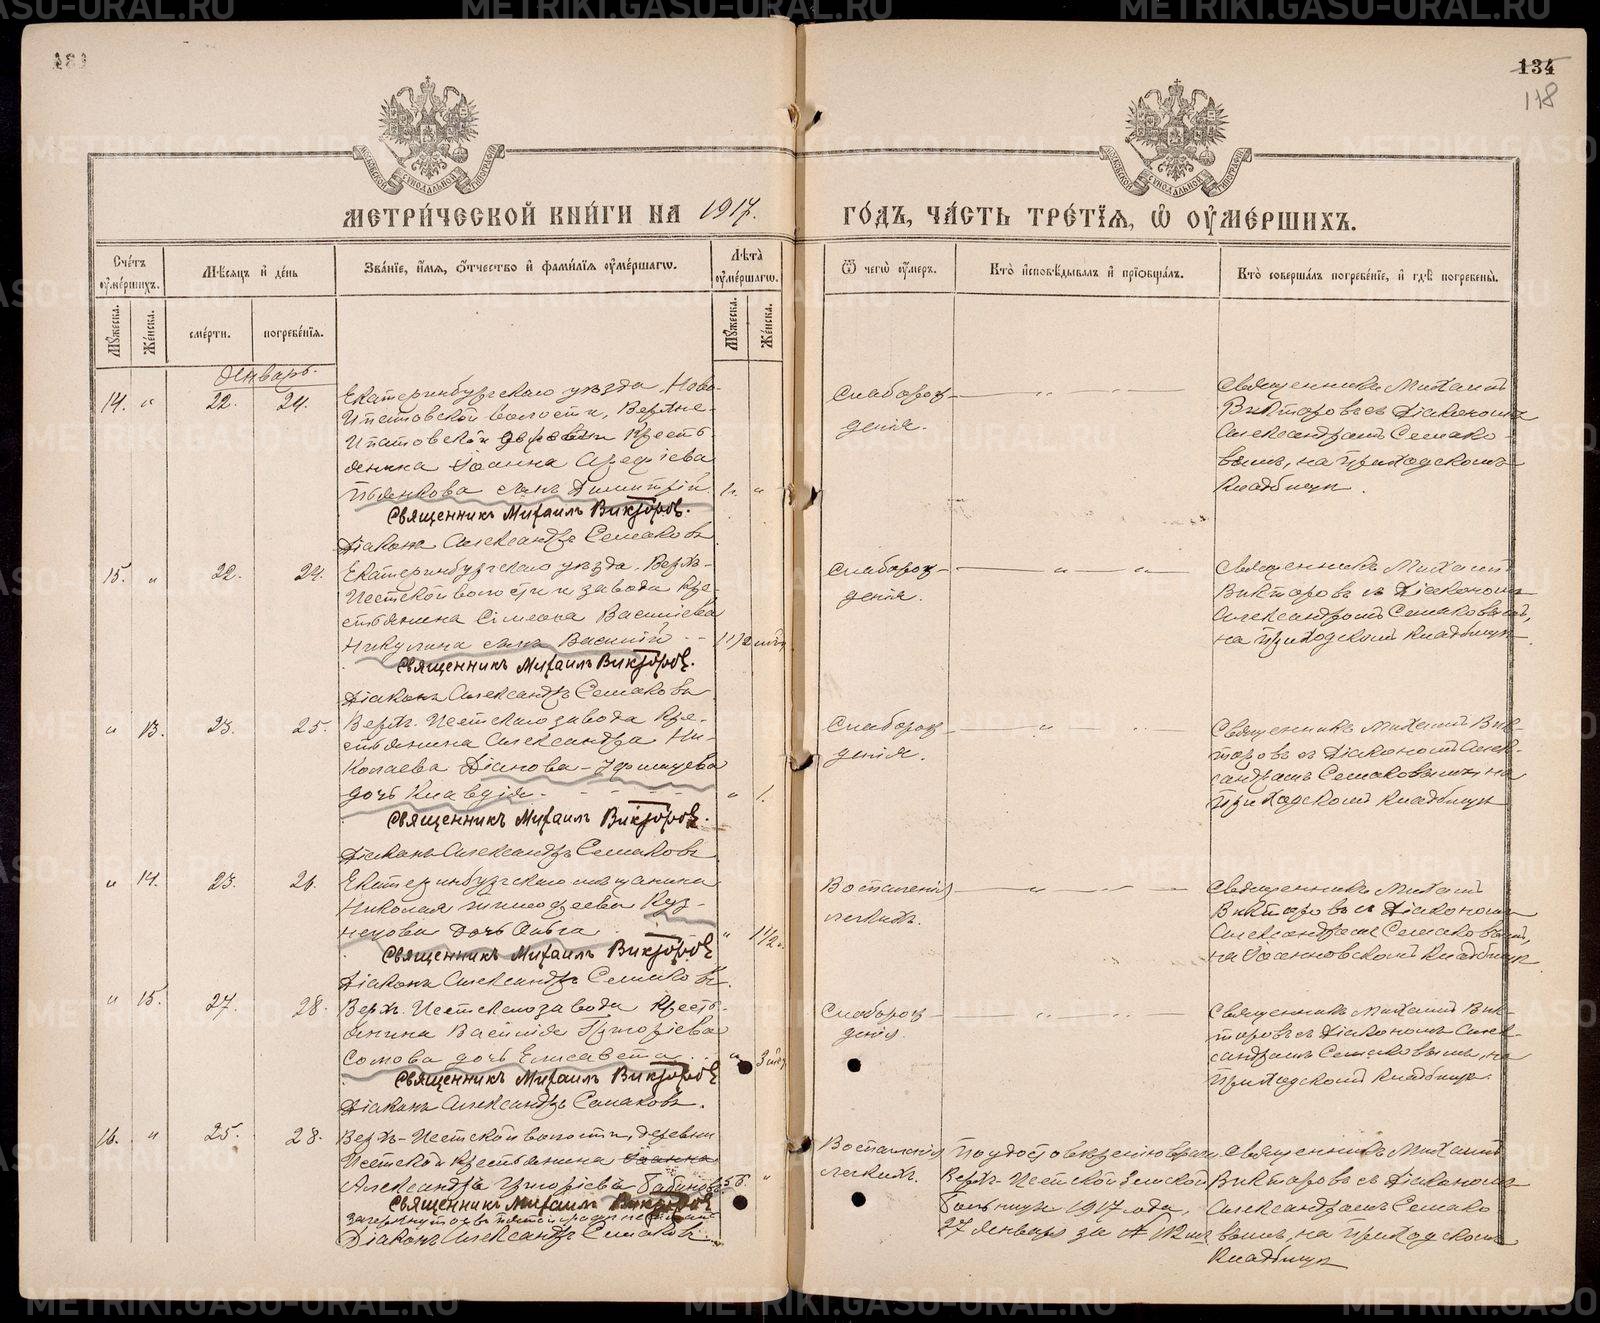 134
118
МЕТРИ́ЧЕСКОЙ КНИ́ГИ НА 1917.
ГО́ДЪ, ЧА́СТЬ ТРЕ́ТЇѦ, Ѽ ОУ҆МЕ́РШИХЪ.
Сче́тъ оу҆ме́ршихъ.
Мѣ́сяцъ и҆ де́нь
Зва́нїе, и҆́мя, ѻ҆́тчество и҆ фами́лїя оу҆ме́ршагѡ.
Лѣ́та оу҆ме́ршагѡ.
Ѿ чегѡ̀ оу҆́меръ.
Кто̀ и҆сповѣ́дывалъ и҆ прїѡбща́лъ.
Кто̀ соверша́лъ погребе́нїе, и҆ гдѣ̀ погребены̀.
Му́жеска.
Же́нска.
сме́рти.
погребе́нїя.
Му́жеска.
Же́нска.
Январь.
14. " 22. 24.
Екатеринбургскаго уѣзда, Ново-
Ипатовской волости, Верхне-
Ипатовской деревни Кресть-
янина Іоанна Арефіева
Пьянкова сынъ Димитрій
Священникъ Михаилъ Викторовъ.
Діаконъ Александръ Семаковъ
Слаборож-
денія.
Священникъ Михаилъ
Викторовъ съ Діакономъ
Александромъ Семако-
вымъ, на Приходскомъ
Кладбищѣ.
15. " 22. 24.
Екатеринбургскаго уѣзда, Верхъ-
Исетской волости и завода Кре-
стьянина Сімеона Василіева
Никулина сынъ Василій
11/2 мѣс.
Священникъ Михаилъ Викторовъ.
Діаконъ Александръ Семаковъ
Слаборож-
денія.
Священникъ Михаилъ
Викторовъ съ Діакономъ
Александромъ Семаковымъ,
на Приходскомъ Кладбищѣ
" 13. 23. 25.
Верхъ-Исетскаго завода Кре-
стьянина Александра Ни-
колаева Діанова-
дочь Клавдія
" 1.
Священникъ Михаилъ Викторовъ.
Діаконъ Александръ Семаковъ
Слаборож-
денія.
Священникъ Михаилъ Вик-
торовъ съ Діакономъ Алек-
сандромъ Семаковымъ, на
Приходскомъ Кладбищѣ
" 14. 23. 26.
Екатеринбургскаго мѣщанина
Николая Тимофеева Куз-
нецова дочь Ольга
" 1 1/2
Священникъ Михаилъ Викторовъ
Діаконъ Александръ Семаковъ.
Воспаленія
легкихъ.
Священникъ Михаилъ
Викторовъ съ Діакономъ
Александромъ Семаковымъ,
на Іоанновскомъ Кладбищѣ
" 15. 27. 28.
Верхъ-Исетскаго завода Кресть-
янина Василія Григоріева
Сомова дочь Елисавета
" 3 мѣс.
Священникъ Михаилъ Викторовъ
Діаконъ Александръ Семаковъ.
Слаборож-
денія.
Священникъ Михаилъ Вик-
торовъ съ Діакономъ Алек-
сандромъ Семаковымъ, на
Приходскомъ Кладбищѣ.
16. " 25. 28.
Верхъ-Исетской волости, деревни
Исетской Крестьянина Іоанна
Александръ Григоріевъ Бабиновъ
56. "
Священникъ Михаилъ Викторовъ
Діаконъ Александръ Семаковъ.
Воспаленія
легкихъ.
По удостовѣренію врача
Верхъ-Исетской Земской
больницы 1917 года,
27 Января за №
Священникъ Михаилъ
Викторовъ съ Діакономъ
Александромъ Семако
вымъ, на Приходскомъ
Кладбищѣ
METRIKI.GASO-URAL.RU